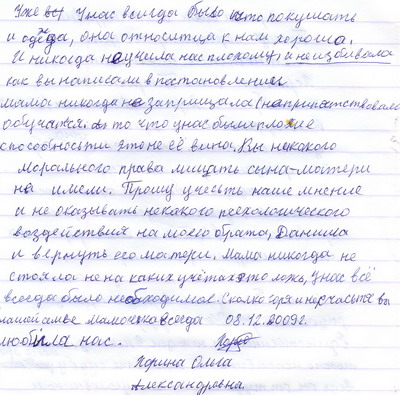 Уже вы Унас всегда было што покушать
и одежда, она относитца к нам хорошо.
И никогда не учила нас плохому и не избивала
как вы написали в постановлении
мама никогда не заприщала (не припятствовала
обучатся. а то что унас были плохие
способности это не её вина. Вы некакого
морального права лишать сына-матери
не имели. Прошу учесть наше мнение
и не оказывать некакого псехологического
воздействия на моего брата, Данила
и вернуть его матери. Мама никогда не
стояла не на каких учётах это ложь, Унас всё
всегда было необходимое. Сколько горя и нечастье вы
нашей семье Мамочка всегда 08.12.2009г.
любила нас.
Ольга
Александровна